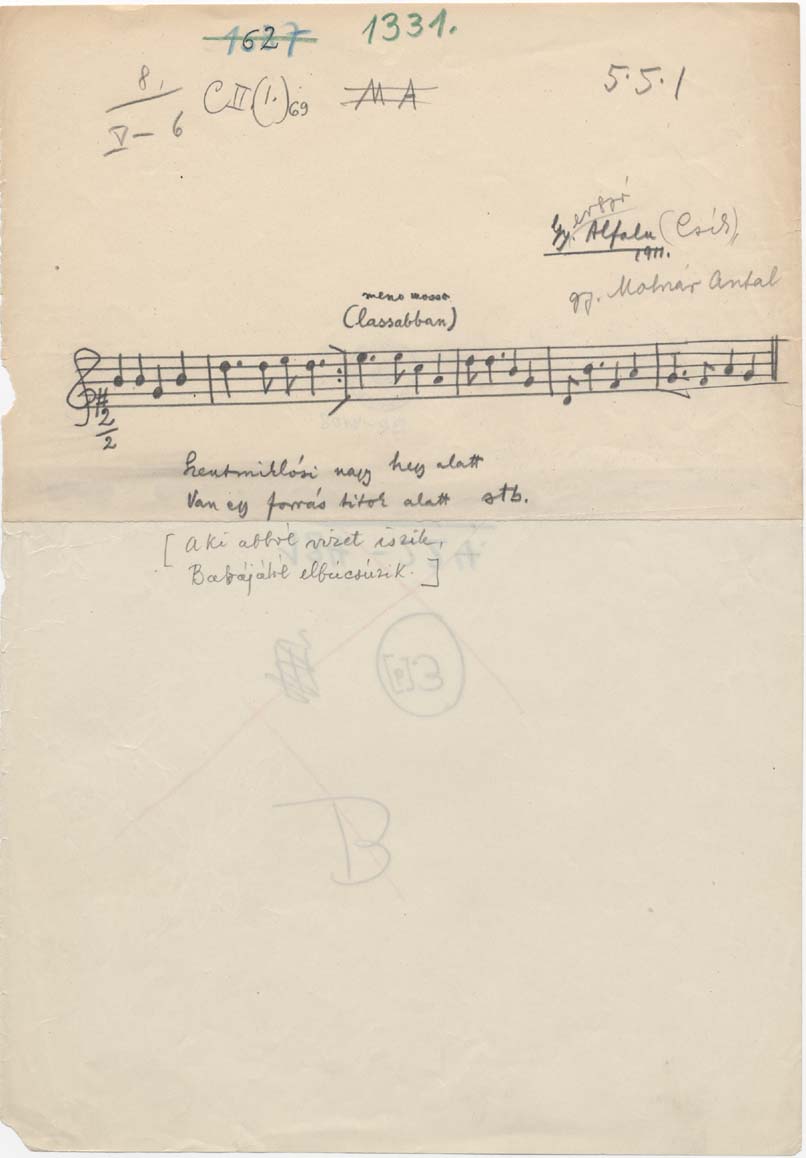 62 1331.
8, CII(1.)69 MA 5.5.1
V-6
Gyergyó Alfalu (Csík)
1911.
gy. Molnár Antal
meno mosso
(lassabban)
2
2
Szentmiklósi nagy hegy alatt
Van egy forrás titok alatt stb.
[Aki abból vizet iszik,
Babájától elbúcsúzik.]
B